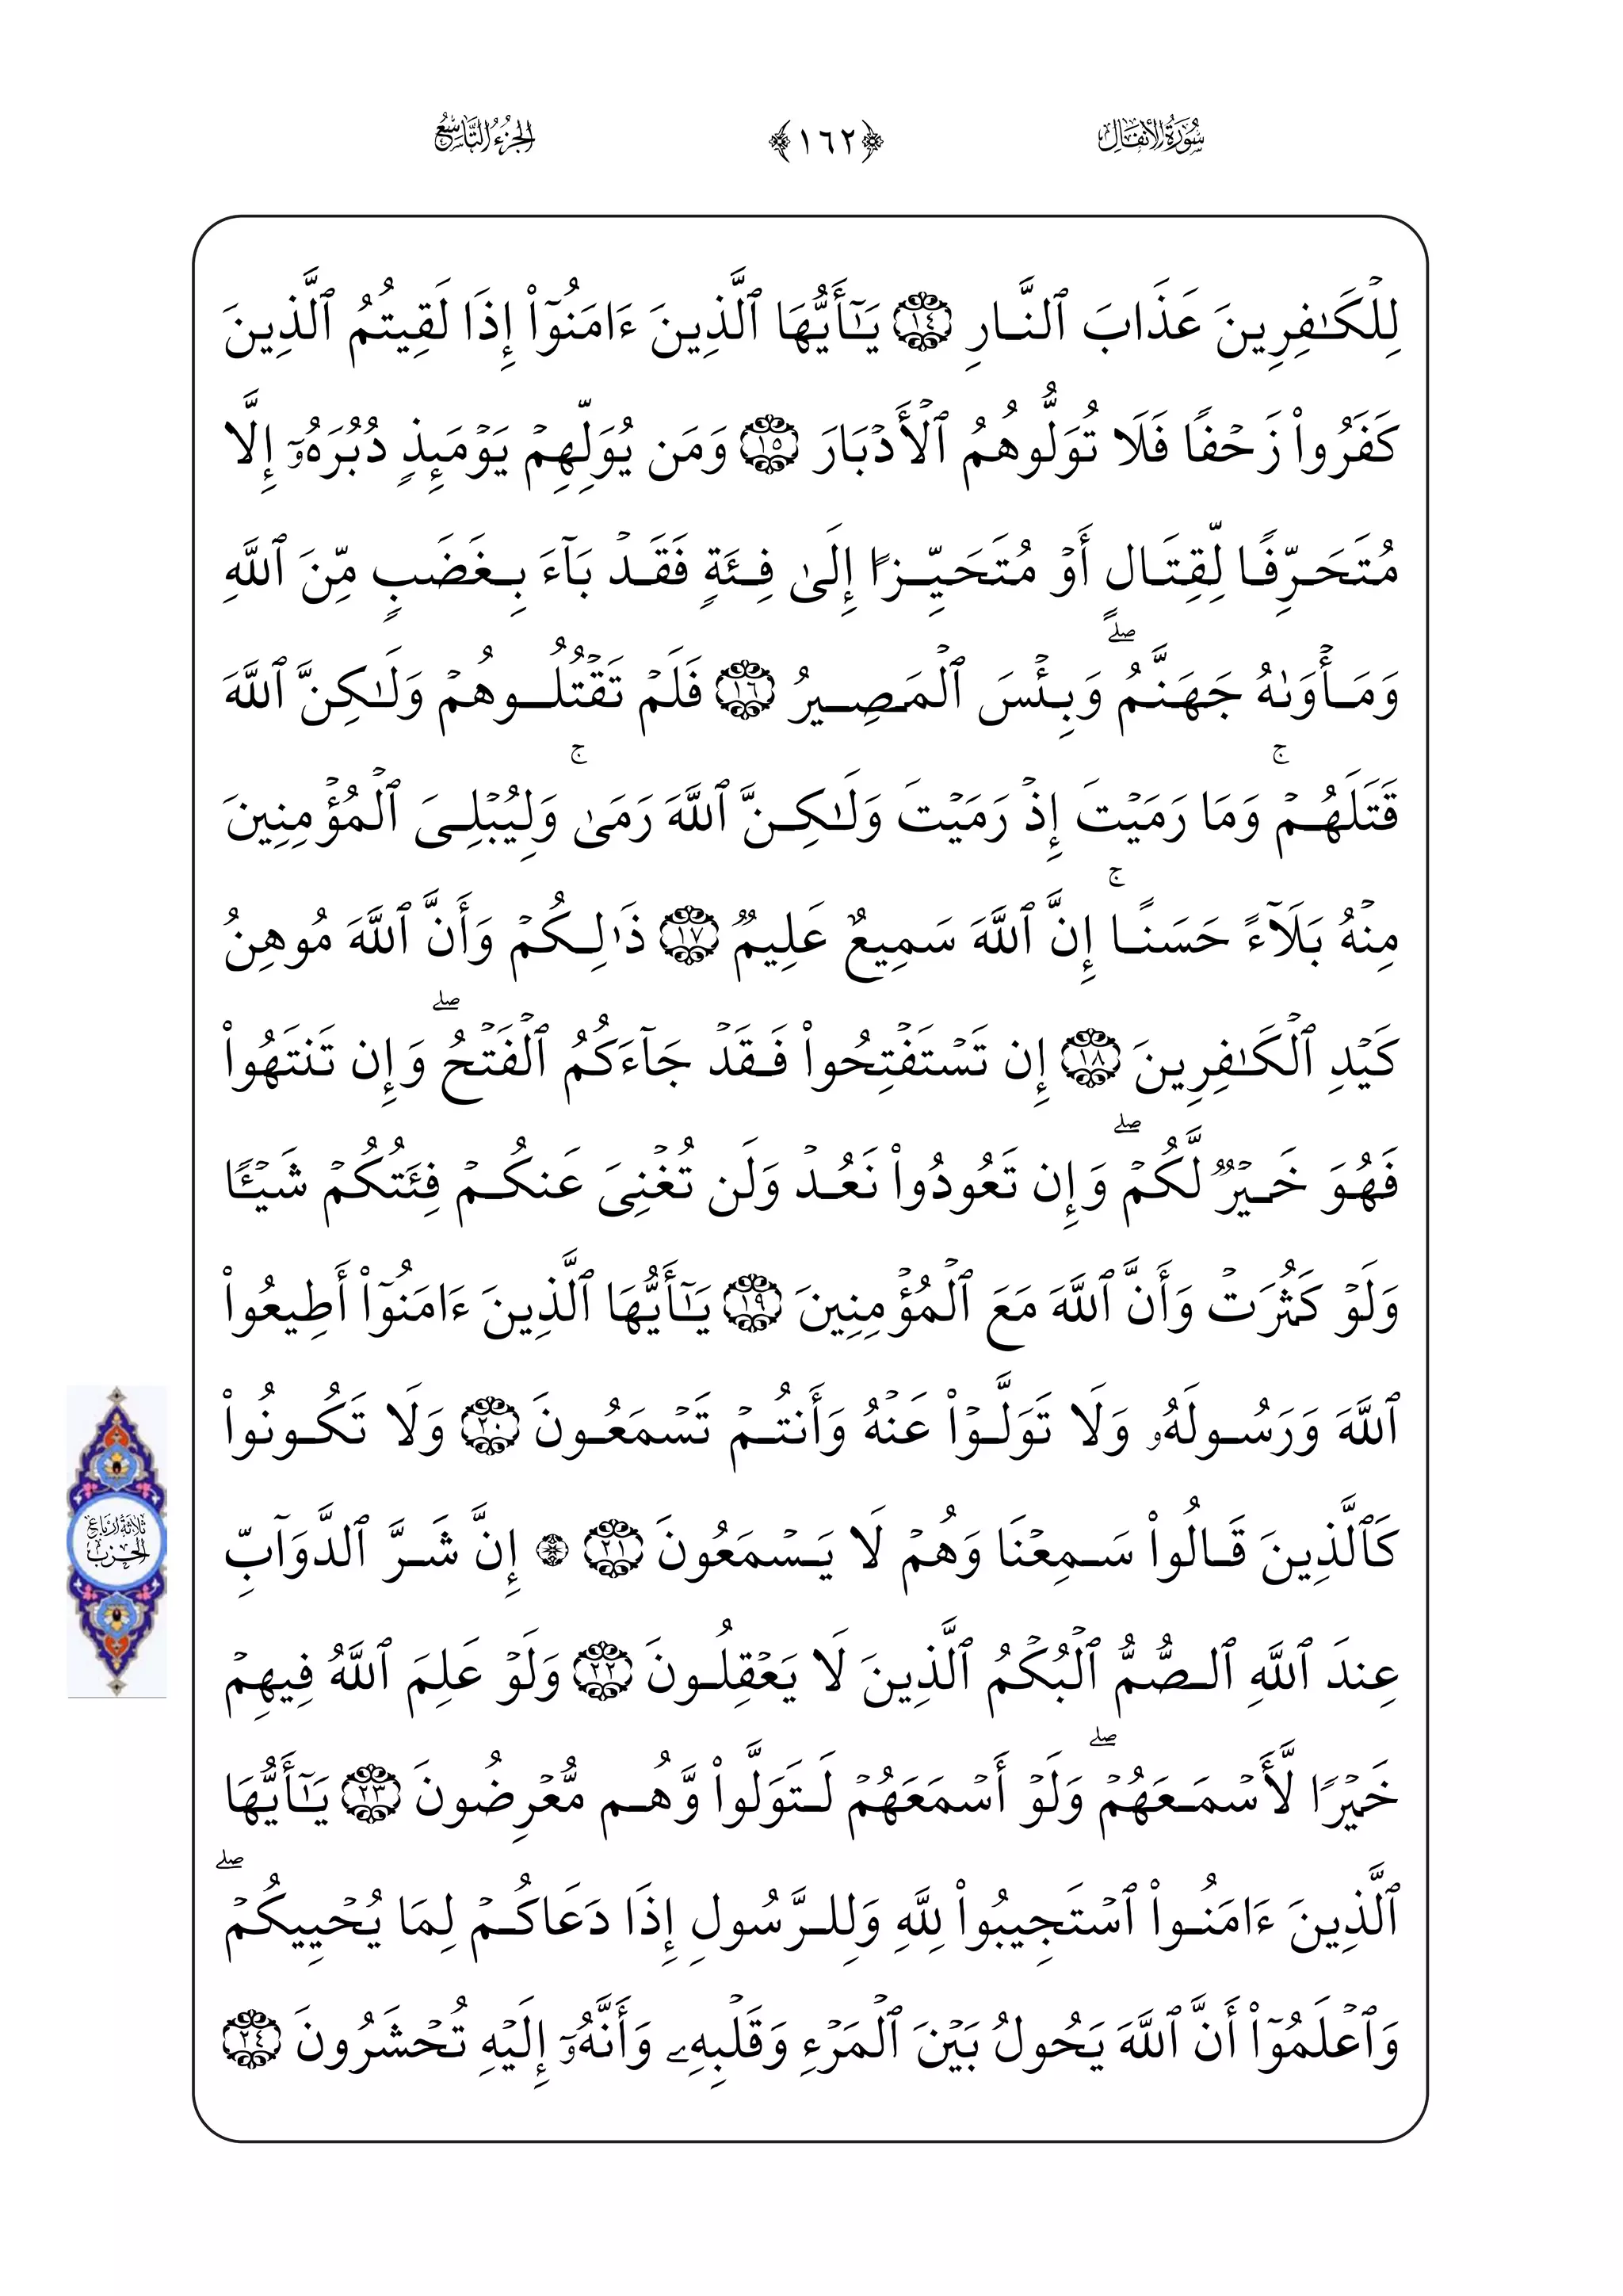 سُورَةُ الأَنفَالِ ﴿١٦٢﴾ الجُزْءُ التَّاسِعُ
لِلۡكَٰفِرِينَ عَذَابَ ٱلنَّارِ ١٤ يَٰٓأَيُّهَا ٱلَّذِينَ ءَامَنُوٓاْ إِذَا لَقِيتُمُ ٱلَّذِينَ
كَفَرُواْ زَحۡفٗا فَلَا تُوَلُّوهُمُ ٱلۡأَدۡبَارَ ١٥ وَمَن يُوَلِّهِمۡ يَوۡمَئِذٖ دُبُرَهُۥٓ إِلَّا
مُتَحَرِّفٗا لِّقِتَالٍ أَوۡ مُتَحَيِّزًا إِلَىٰ فِئَةٖ فَقَدۡ بَآءَ بِغَضَبٖ مِّنَ ٱللَّهِ
وَمَأۡوَىٰهُ جَهَنَّمُۖ وَبِئۡسَ ٱلۡمَصِيرُ ١٦ فَلَمۡ تَقۡتُلُوهُمۡ وَلَٰكِنَّ ٱللَّهَ
قَتَلَهُمۡۚ وَمَا رَمَيۡتَ إِذۡ رَمَيۡتَ وَلَٰكِنَّ ٱللَّهَ رَمَىٰۚ وَلِيُبۡلِيَ ٱلۡمُؤۡمِنِينَ
مِنۡهُ بَلَآءً حَسَنًاۚ إِنَّ ٱللَّهَ سَمِيعٌ عَلِيمٞ ١٧ ذَٰلِكُمۡ وَأَنَّ ٱللَّهَ مُوهِنُ
كَيۡدِ ٱلۡكَٰفِرِينَ ١٨ إِن تَسۡتَفۡتِحُواْ فَقَدۡ جَآءَكُمُ ٱلۡفَتۡحُۖ وَإِن تَنتَهُواْ
فَهُوَ خَيۡرٞ لَّكُمۡۖ وَإِن تَعُودُواْ نَعُدۡ وَلَن تُغۡنِيَ عَنكُمۡ فِئَتُكُمۡ شَيۡـٔٗا
وَلَوۡ كَثُرَتۡ وَأَنَّ ٱللَّهَ مَعَ ٱلۡمُؤۡمِنِينَ ١٩ يَٰٓأَيُّهَا ٱلَّذِينَ ءَامَنُوٓاْ أَطِيعُواْ
ٱللَّهَ وَرَسُولَهُۥ وَلَا تَوَلَّوۡاْ عَنۡهُ وَأَنتُمۡ تَسۡمَعُونَ ٢٠ وَلَا تَكُونُواْ
كَٱلَّذِينَ قَالُواْ سَمِعۡنَا وَهُمۡ لَا يَسۡمَعُونَ ٢١ ۞ إِنَّ شَرَّ ٱلدَّوَآبِّ
ثَلَاثَةُ أَرْبَاعِ
الحِزْبِ
عِندَ ٱللَّهِ ٱلصُّمُّ ٱلۡبُكۡمُ ٱلَّذِينَ لَا يَعۡقِلُونَ ٢٢ وَلَوۡ عَلِمَ ٱللَّهُ فِيهِمۡ
خَيۡرٗا لَّأَسۡمَعَهُمۡۖ وَلَوۡ أَسۡمَعَهُمۡ لَتَوَلَّواْ وَّهُم مُّعۡرِضُونَ ٢٣ يَٰٓأَيُّهَا
ٱلَّذِينَ ءَامَنُواْ ٱسۡتَجِيبُواْ لِلَّهِ وَلِلرَّسُولِ إِذَا دَعَاكُمۡ لِمَا يُحۡيِيكُمۡۖ
وَٱعۡلَمُوٓاْ أَنَّ ٱللَّهَ يَحُولُ بَيۡنَ ٱلۡمَرۡءِ وَقَلۡبِهِۦ وَأَنَّهُۥٓ إِلَيۡهِ تُحۡشَرُونَ ٢٤